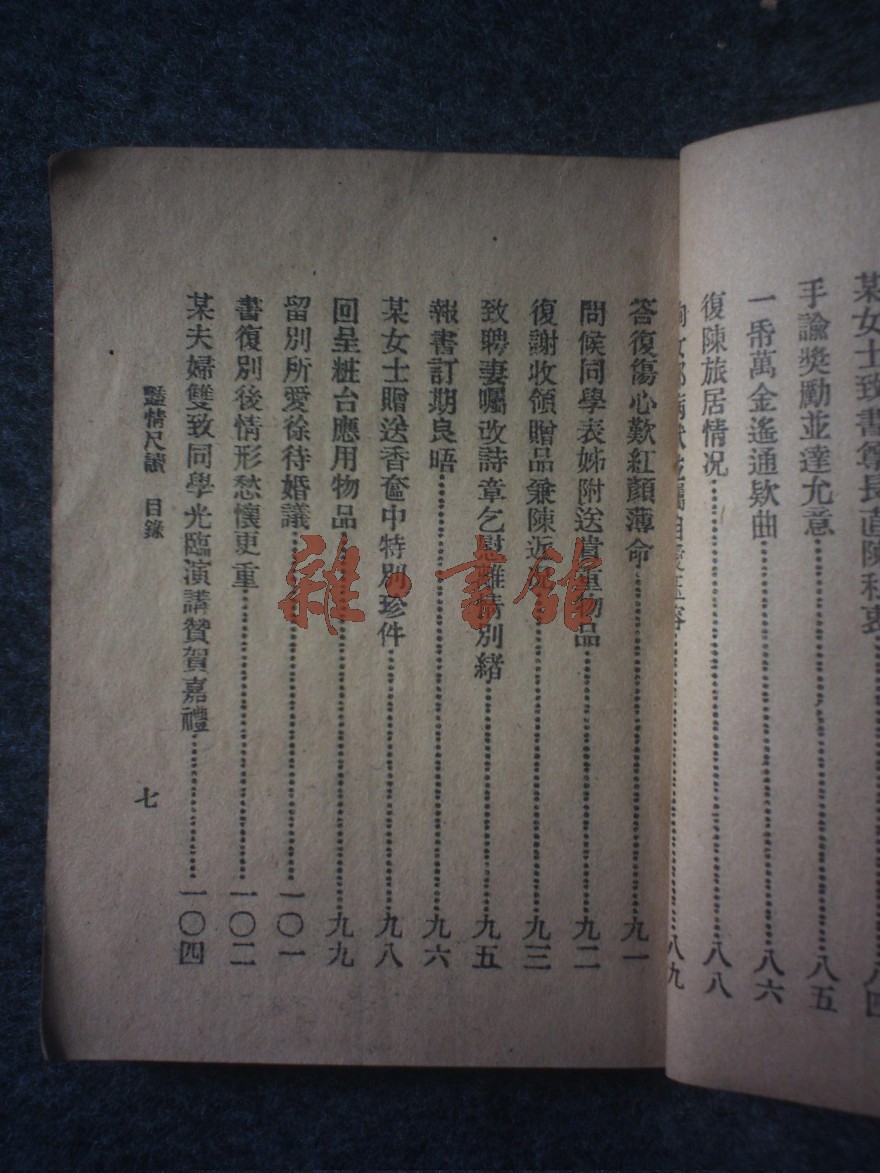 某女士致書尊長直陳私衷 八四
手諭獎勵並達允意 八五
一帋萬金遙通欵曲 八六
復陳旅居情况 八八
八九
答復傷心歎紅顏薄命 九一
問候同學表姊附送貴重物品 九二
復謝收領贈品兼陳近况 九三
致聘妻囑改詩章乞慰離情別緒 九五
報書訂期良晤 九六
某女士贈送香奩中特別珍件 九八
回呈粧台應用物品 九九
留別所愛徐待婚議 一〇一
書復別後情形愁懷更重 一〇二
某夫婦雙致同學光臨演講贊賀嘉禮 一〇四
豔情尺牘 目錄
七
雜·書館